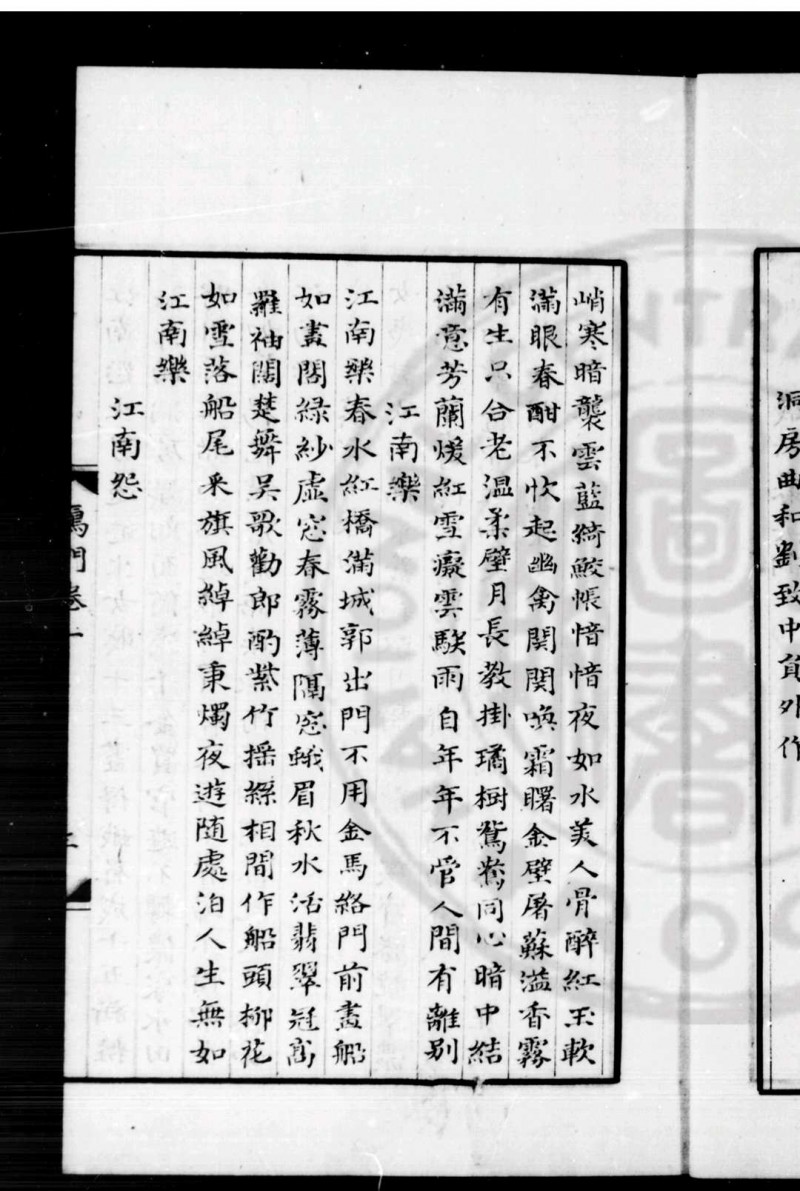 洞房曲和劉致中員外作
峭寒暗襲雲藍綺鮫帳愔愔夜如水美人骨醉紅玉軟
滿眼春酣不忺起幽禽関関喚霜曙金壁屠蘇溢香霧
有生只合老溫柔壁月長教掛璚樹鴛鴦同心暗中結
滿意芳蘭煖紅雪癡雲騃雨自年年不管人間有離别
江南樂
江南樂春水紅橋滿城郭出門不用金馬絡門前畫船
如畫閣綠紗虛窓春霧薄隔窓蛾眉秋水活翡翠冠高
羅袖闊楚舞吳歌勸郎酌紫竹揺絲相間作船頭柳花
如雪落船尾采旗風綽綽秉燭夜遊隨處泊人生無如
江南樂
江南怨
鴈門卷一